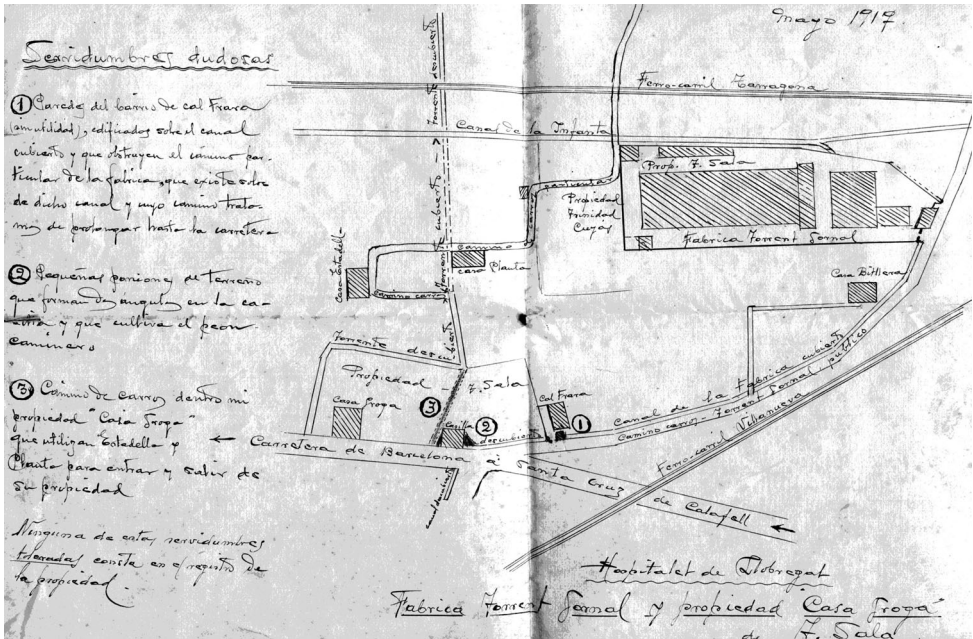 Mayo 1917.
Servidumbres dudosas
① Paredes del barrio de cal Frara
(sin utilidad), edificados sobre el canal
cubierto y que obstruyen el camino par-
ticular de la fabrica, que existe sobre
de dicho canal y cuyo camino trata-
mos de prolongar hasta la carretera
② Pequeñas porciones de terreno
que forman dos angulos en la ca-
y que cultiva el peon
caminero
③ Camino de carros dentro mi
propiedad "Casa Groga"
que utilizan Estadella y
Planta para entrar y salir de
su propiedad
Ninguna de estas servidumbres
toleradas consta en el registro de
la propiedad.
Ferro-carril Tarragona
Canal de la Infanta
Torrente descubierto
Torrente cubierto
Prop. F. Sala
Propiedad
Trinidad
Cuyas
particular
Fabrica Torrent Gornal
Casa Estadella
camino
casa Planta
camino carros
Casa Bittlera
Torrente descubierto
Propiedad - F. Sala
Casa Groga
③
②
Casilla
descubierto
Cal Frara
①
Canal de la Fabrica cubierto
Camino carros - Torrent Gornal público
Ferro-carril Villanueva
Carretera de Barcelona á Santa Cruz de Calafell
canal descubierto
Hospitalet de Llobregat
Fabrica Torrent Gornal y propiedad "Casa Groga"
de F. Sala